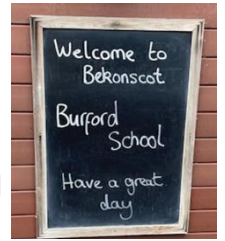 Welcome to
Bekonscot
Burford
School
Have a great
day